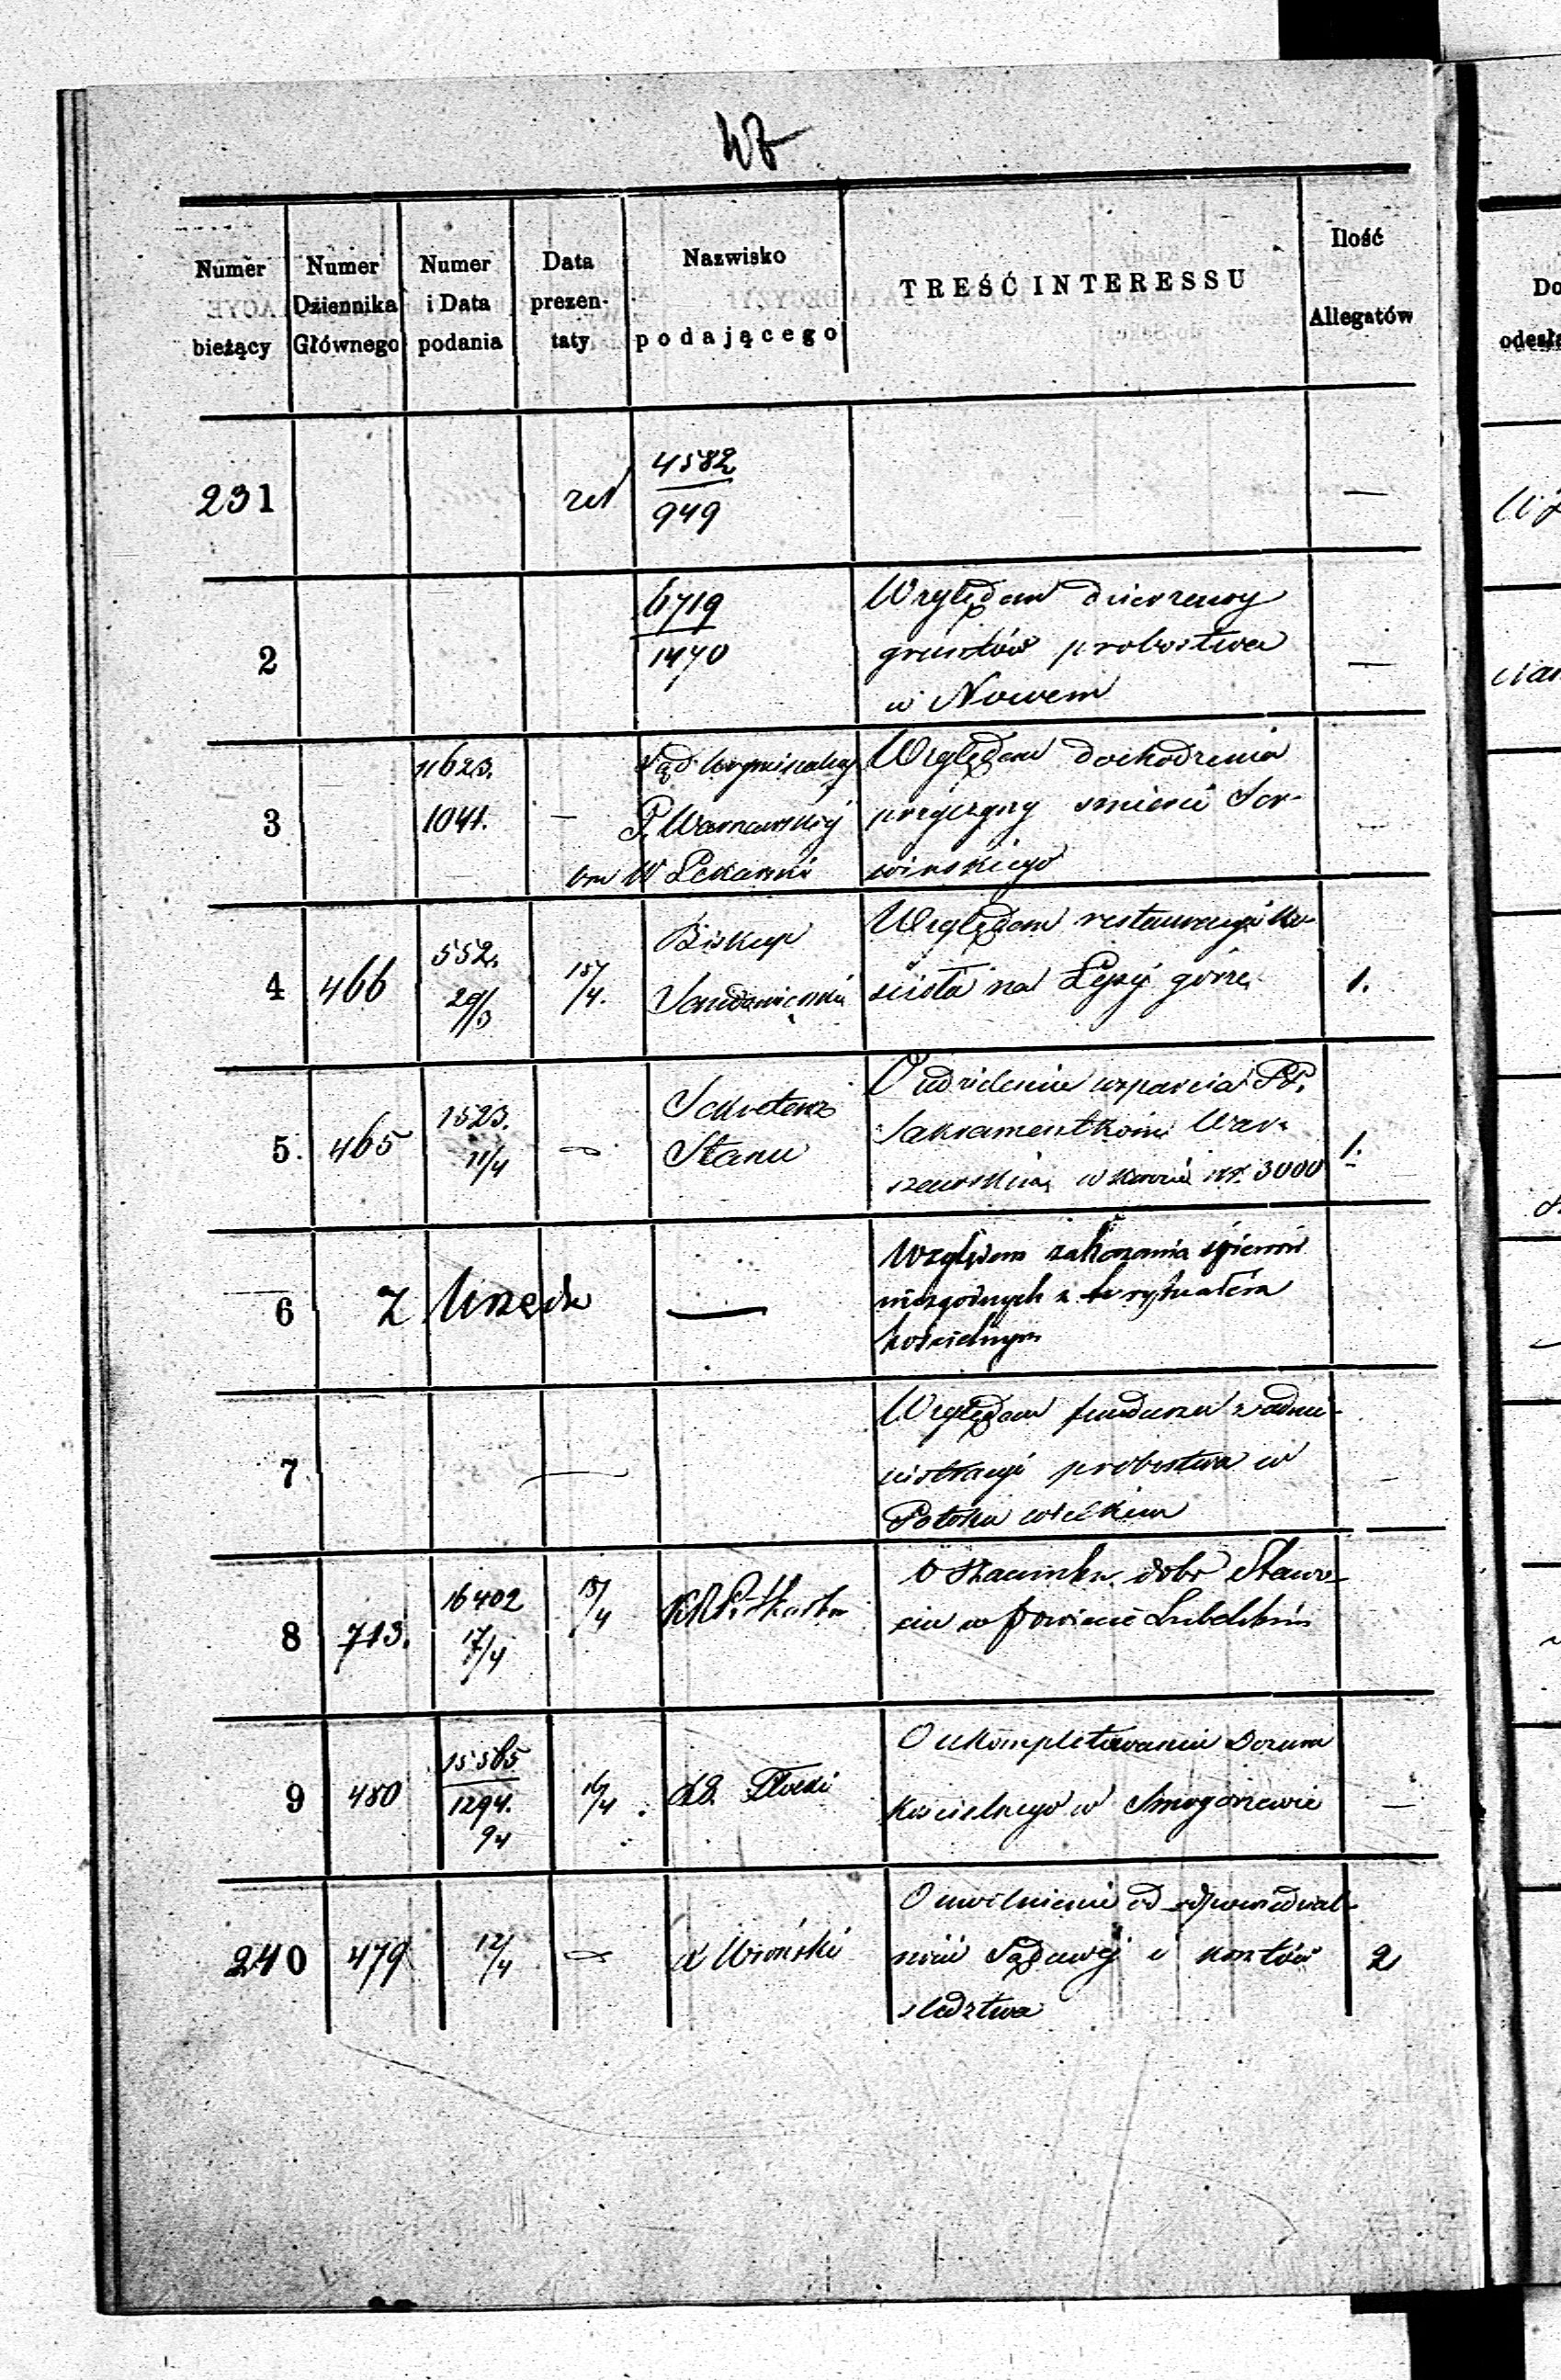 Numer bieżący
Numer Dziennika Głównego
Numer i Data podania
Data prezentaty
Nazwisko podającego
TREŚĆ INTERESSU
Ilość Allegatów
231
4582
949
—
2
6719
1470
Względem dzierzawy
gruntów probostwa
w Nowem
—
3
11623.
1041.
—
Sąd kryminalny
P. Warszawskiej
Względem dochodzenia
przyczyny smierci
—
4
466
552.
29/3
15/4.
Biskup
Sandomierski
Względem restauracyi ko-
scioła na Łysej górze
1.
5.
465
1523.
11/4
Sekretarz
Stanu
O udzielenie wsparcia PP.
Sakramentkom War-
szawskim w kwocie 3000
1.
6
Z Urzędu
—
Względem zakazania śpiewów
niezgodnych z rytuałem
kościelnym
7
—
Względem funduszu z admi-
nistracyi probostwa w
Potoku wielkim
8
713.
16402
17/4
18/4
KRP. i Skarbu
O szacunku dobr
w Powiecie Lubelskim
9
480
15565
1294.
9/4
16/4
O ukompletowanie Dozoru
Kościelnego w Smogorzewie
—
240
479
12/4
O uwolnienie od odpowiedzial-
ności Sądowej i kosztów
sledztwa
2
Do
odesła